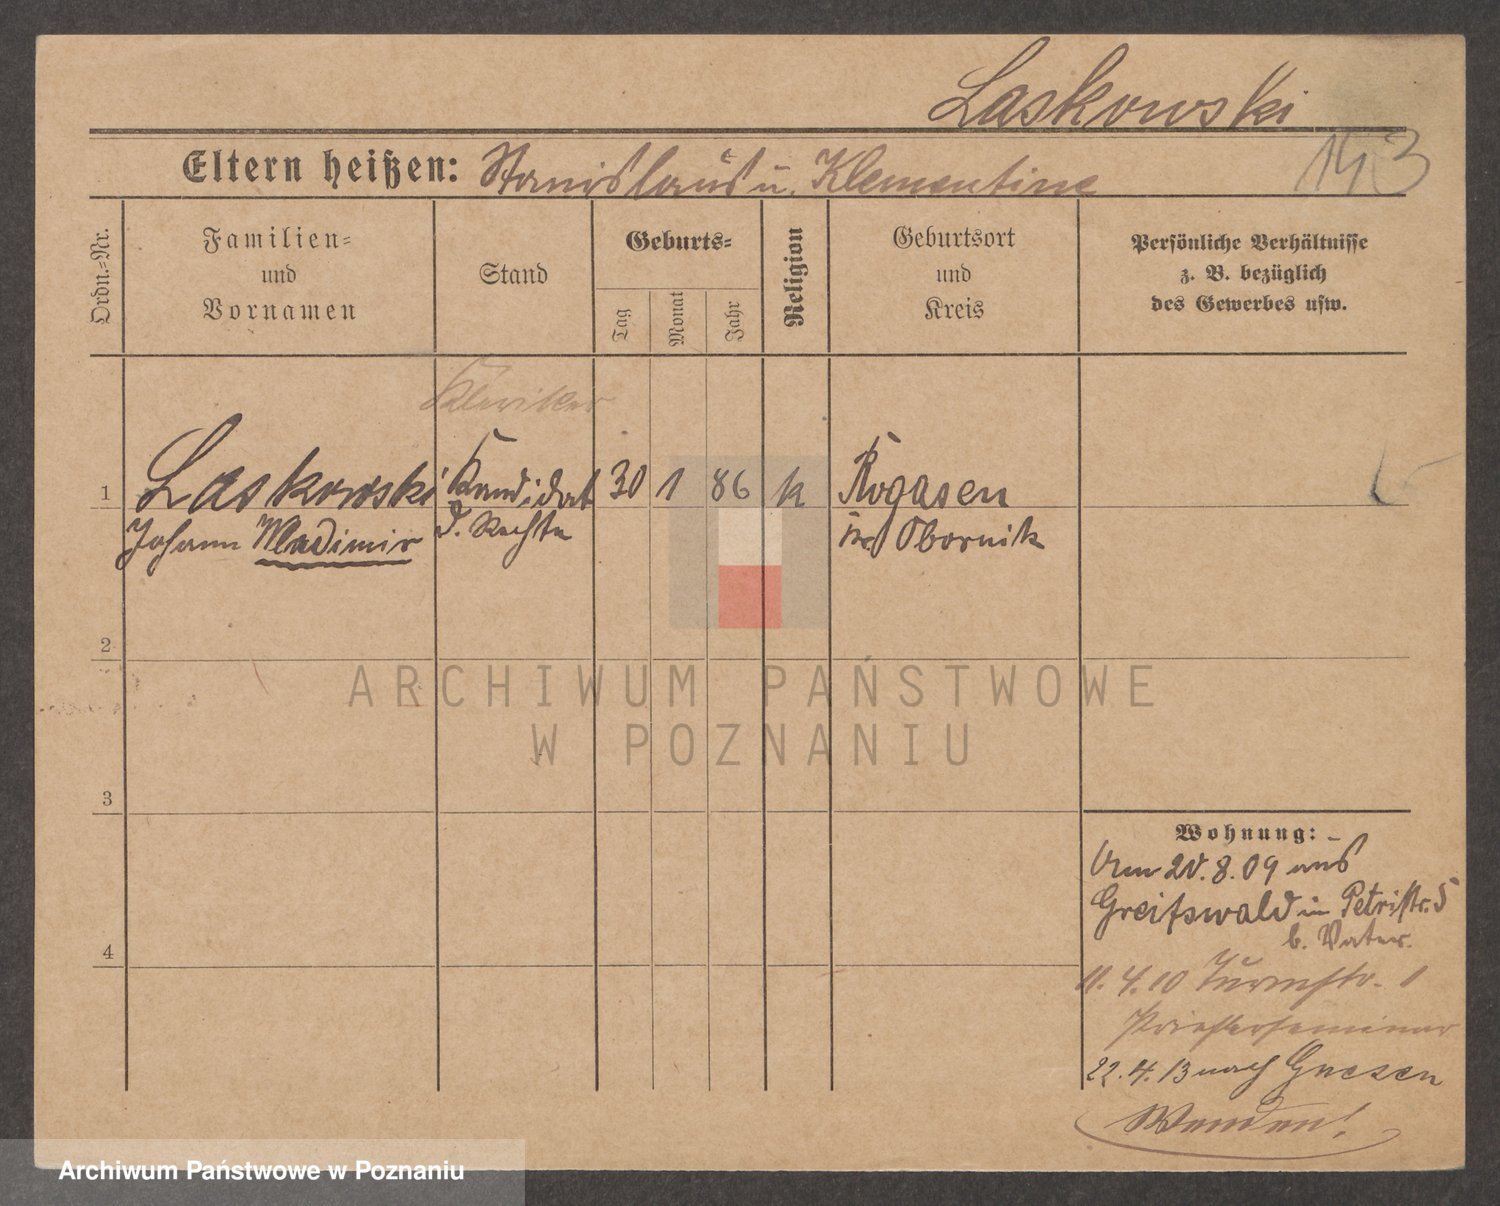 Laskowski
143
Eltern heißen: Stanislaus u. Klementine
Ordn.-Nr.
Familien-
und
Vornamen
Stand
Geburts-
Tag
Monat
Jahr
Religion
Geburtsort
und
Kreis
Persönliche Verhältnisse
z. B. bezüglich
des Gewerbes usw.
Kleriker
1 Laskowski Kandidat 30 1 86 k Rogasen
Johann Wladimir d. Rechte Kr. Obornik
2
3
4
Wohnung:
Am 20.8.09 aus
Greifswald in Petristr. 5
b. Vater.
11.4.10 Turmstr. 1
Priesterseminar
22.4.13 nach Gnesen
Wenden!
ARCHIWUM PAŃSTWOWE
W POZNANIU
Archiwum Państwowe w Poznaniu